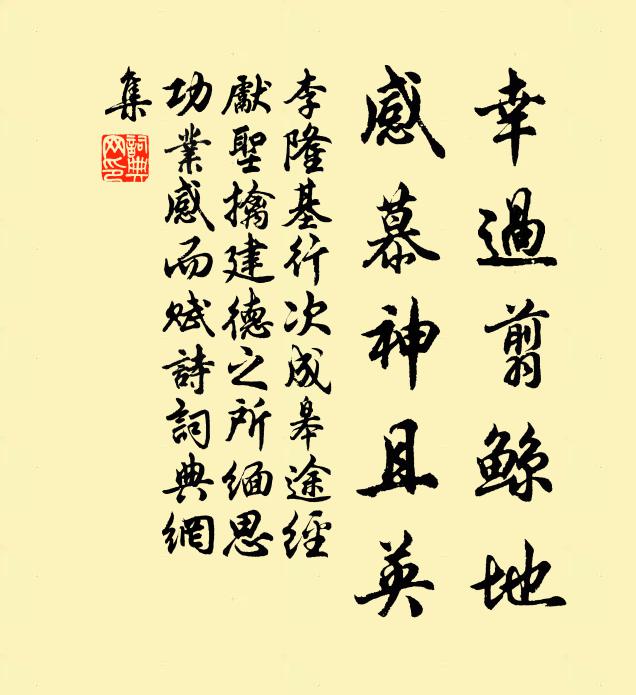 幸過翦鯨地
感慕神且英
李隆基行次成皋途經
獻聖擒建德之所緬思
功業感而賦詩詞典網
集
詞典網印